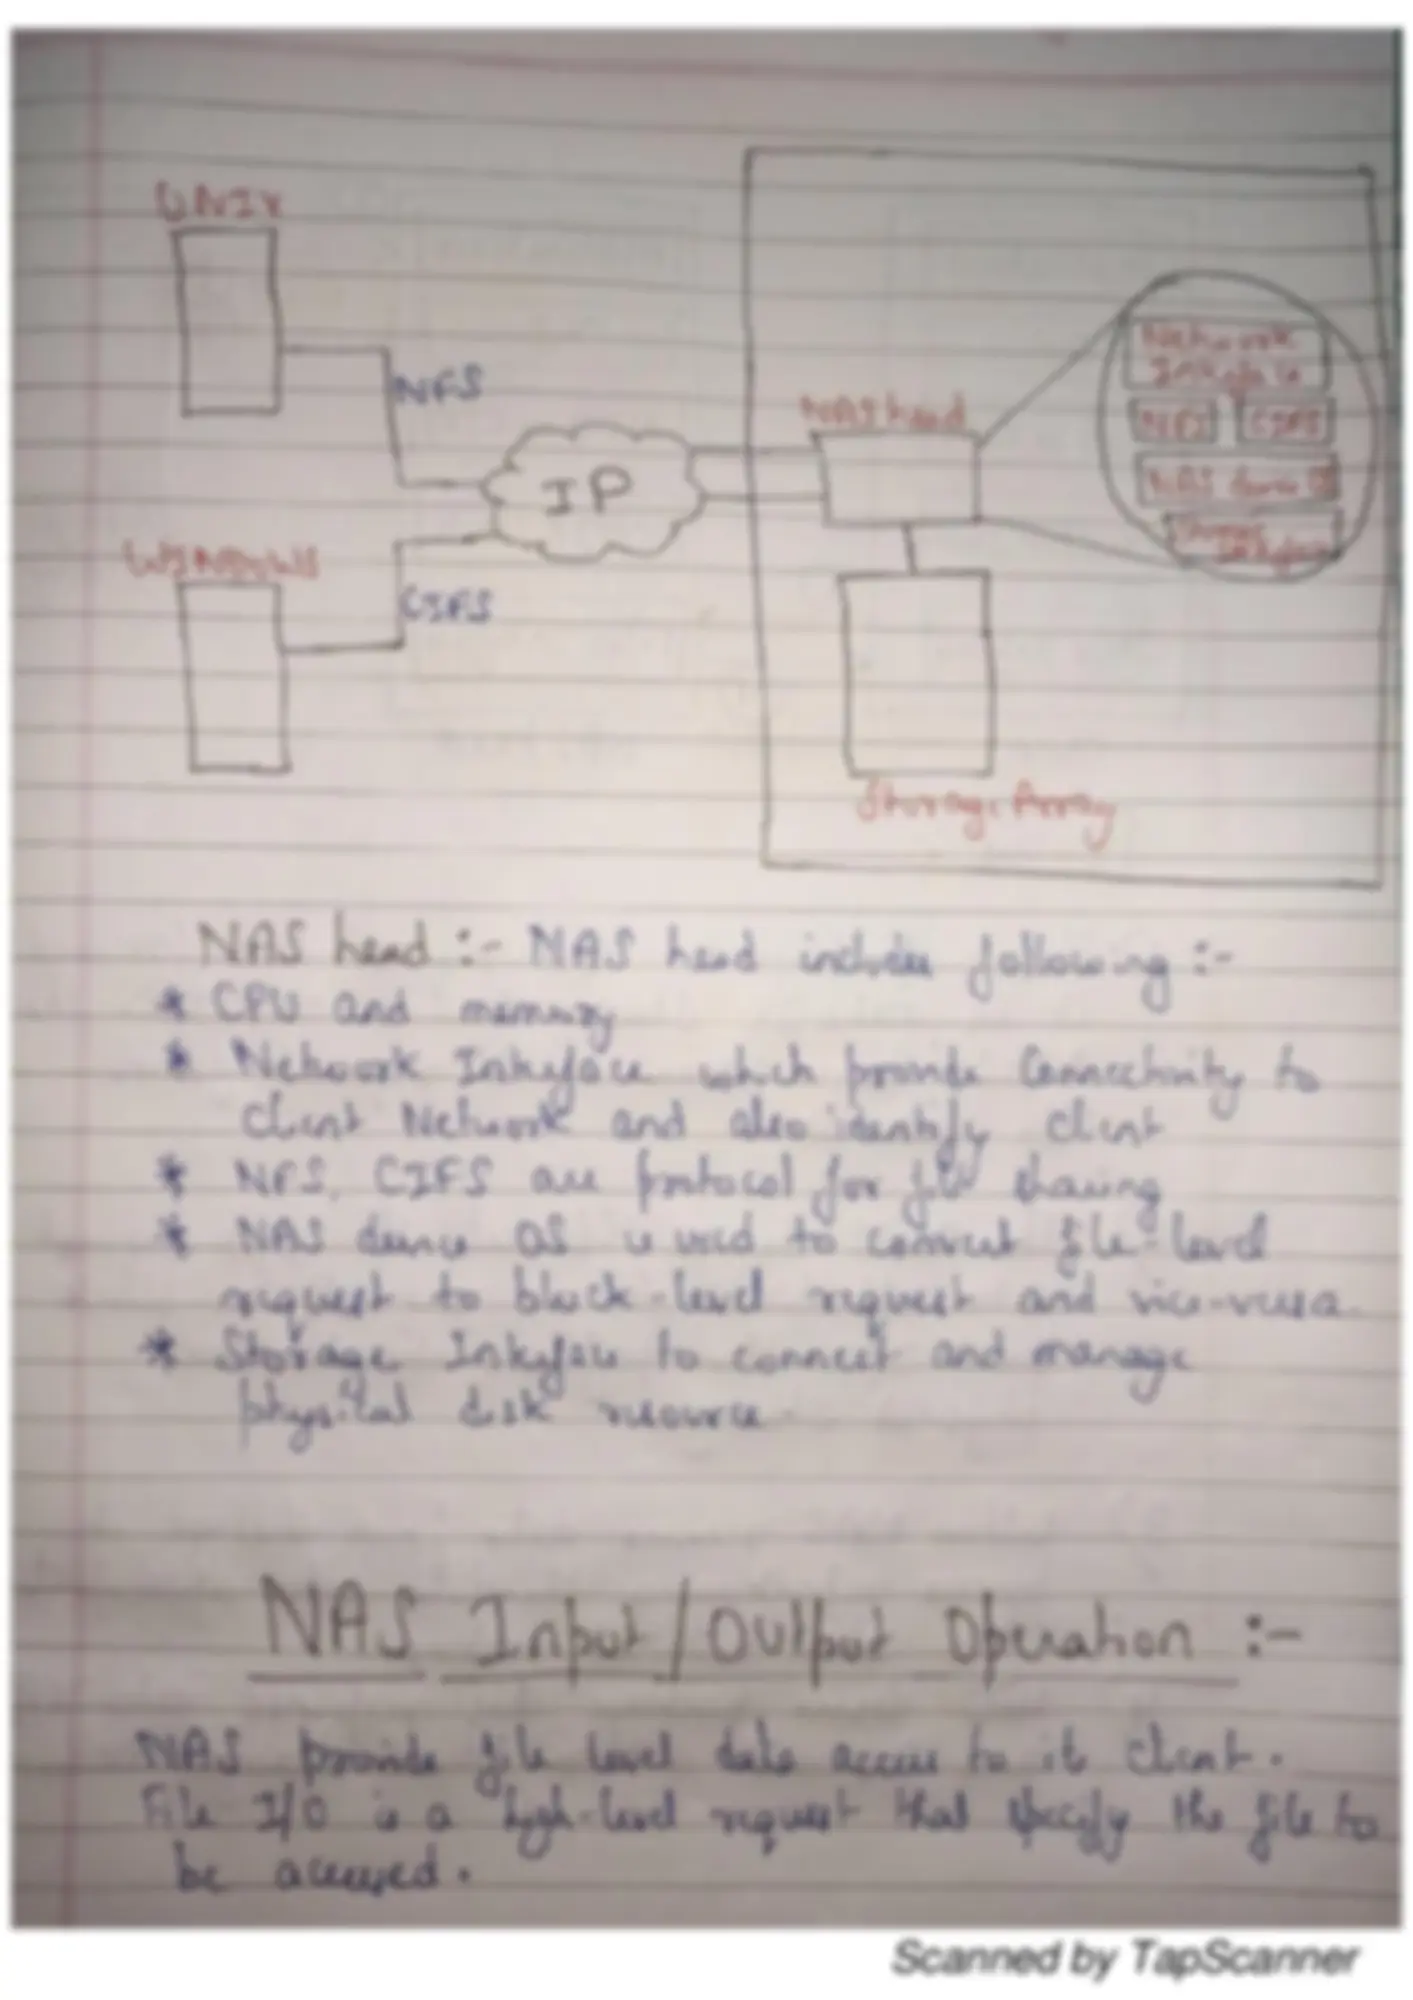 UNIX
NFS
IP
WINDOWS
CIFS
NAS head
Network
Interface
NFS CIFS
NAS device OS
Storage
Interface
Storage Array
NAS head :- NAS head includes following :-
* CPU and memory
* Network Interface which provide Connectivity to
client Network and also identify client
* NFS, CIFS are protocol for file sharing
* NAS device OS is used to convert file-level
request to block-level request and vice-versa
* Storage Interface to connect and manage
physical disk resource
NAS Input/Output Operation :-
NAS provide file level data access to it client.
File I/O is a high-level request that specify the file to
be accessed.
Scanned by TapScanner